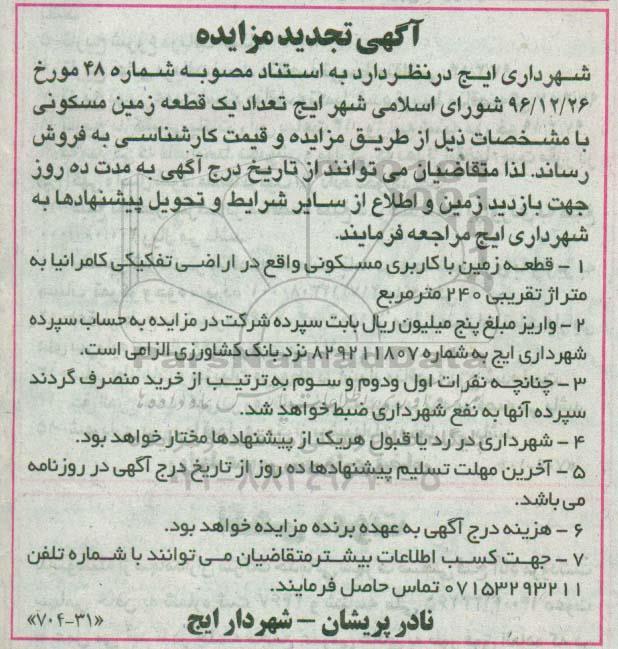 آگهی تجدید مزایده
شهرداری ایج درنظر دارد به استناد مصوبه شماره ۴۸ مورخ
۹۶/۱۲/۲۶ شورای اسلامی شهر ایج تعداد یک قطعه زمین مسکونی
با مشخصات ذیل از طریق مزایده و قیمت کارشناسی به فروش
رساند. لذا متقاضیان می توانند از تاریخ درج آگهی به مدت ده روز
جهت بازدید زمین و اطلاع از سایر شرایط و تحویل پیشنهادها به
شهرداری ایج مراجعه فرمایند.
۱ – قطعه زمین با کاربری مسکونی واقع در اراضی تفکیکی کامرانیا به
متراژ تقریبی ۲۴۰ مترمربع
۲ – واریز مبلغ پنج میلیون ریال بابت سپرده شرکت در مزایده به حساب سپرده
شهرداری ایج به شماره ۸۲۹۲۱۱۸۰۷ نزد بانک کشاورزی الزامی است.
۳ – چنانچه نفرات اول ودوم و سوم به ترتیب از خرید منصرف گردند
سپرده آنها به نفع شهرداری ضبط خواهد شد.
۴ – شهرداری در رد یا قبول هریک از پیشنهادها مختار خواهد بود.
۵ – آخرین مهلت تسلیم پیشنهادها ده روز از تاریخ درج آگهی در روزنامه
می باشد.
۶ – هزینه درج آگهی به عهده برنده مزایده خواهد بود.
۷ – جهت کسب اطلاعات بیشتر متقاضیان می توانند با شماره تلفن
۰۷۱۵۳۲۹۳۲۱۱ تماس حاصل فرمایند.
نادر پریشان – شهردار ایج
«۷۰۴-۳۱»
ParsNamadData